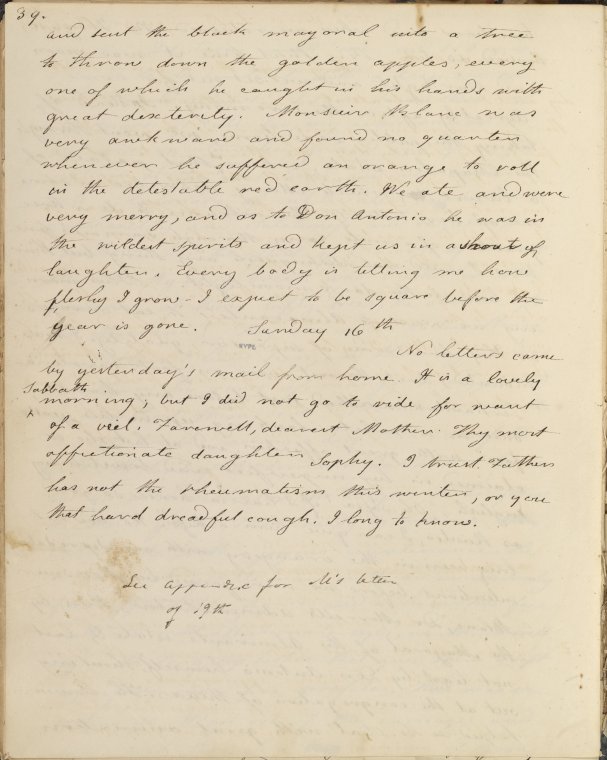 39.
and sent the black mayoral into a tree
to throw down the golden apples, every
one of which he caught in his hands with
great dexterity. Monsieur Blanc was
very awkward and found no quarter
whenever he suffered an orange to roll
in the detestable red earth. We ate and were
very merry, and as to Don Antonio he was in
the wildest spirits and kept us in a shout of
laughter. Every body is telling me how
fleshy I grow - I expect to be square before the
year is gone. Sunday 16th
NYPL
No letters came
by yesterday's mail from home. It is a lovely
Sabbath
morning, but I did not go to ride for want
of a veil. Farewell, dearest Mother. Thy most
affectionate daughter Sophy. I trust Father
has not the rheumatism this winter, or you
that hard dreadful cough. I long to know.
See appendix for M's letter
of 19th